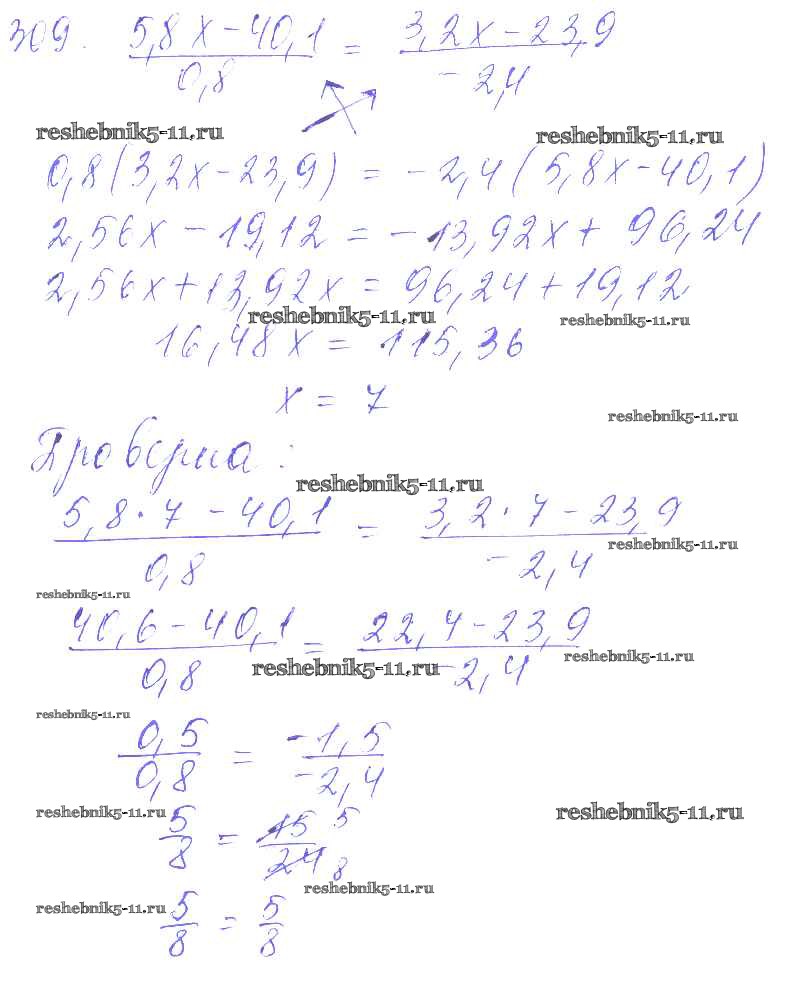 309. (5,8x - 40,1)/0,8 = (3,2x - 23,9)/-2,4
reshebnik5-11.ru reshebnik5-11.ru
0,8(3,2x - 23,9) = -2,4(5,8x - 40,1)
2,56x - 19,12 = -13,92x + 96,24
2,56x + 13,92x = 96,24 + 19,12
reshebnik5-11.ru reshebnik5-11.ru
16,48x = 115,36
x = 7
reshebnik5-11.ru
Проверка:
reshebnik5-11.ru
(5,8·7 - 40,1)/0,8 = (3,2·7 - 23,9)/-2,4
reshebnik5-11.ru
reshebnik5-11.ru
(40,6 - 40,1)/0,8 = (22,4 - 23,9)/-2,4
reshebnik5-11.ru reshebnik5-11.ru
reshebnik5-11.ru
0,5/0,8 = -1,5/-2,4
reshebnik5-11.ru reshebnik5-11.ru
5/8 = 15 5/24 8
reshebnik5-11.ru
reshebnik5-11.ru
5/8 = 5/8